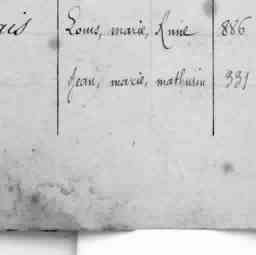 ais Louis, marie, Anne 886
Jean, marie, mathurin 331